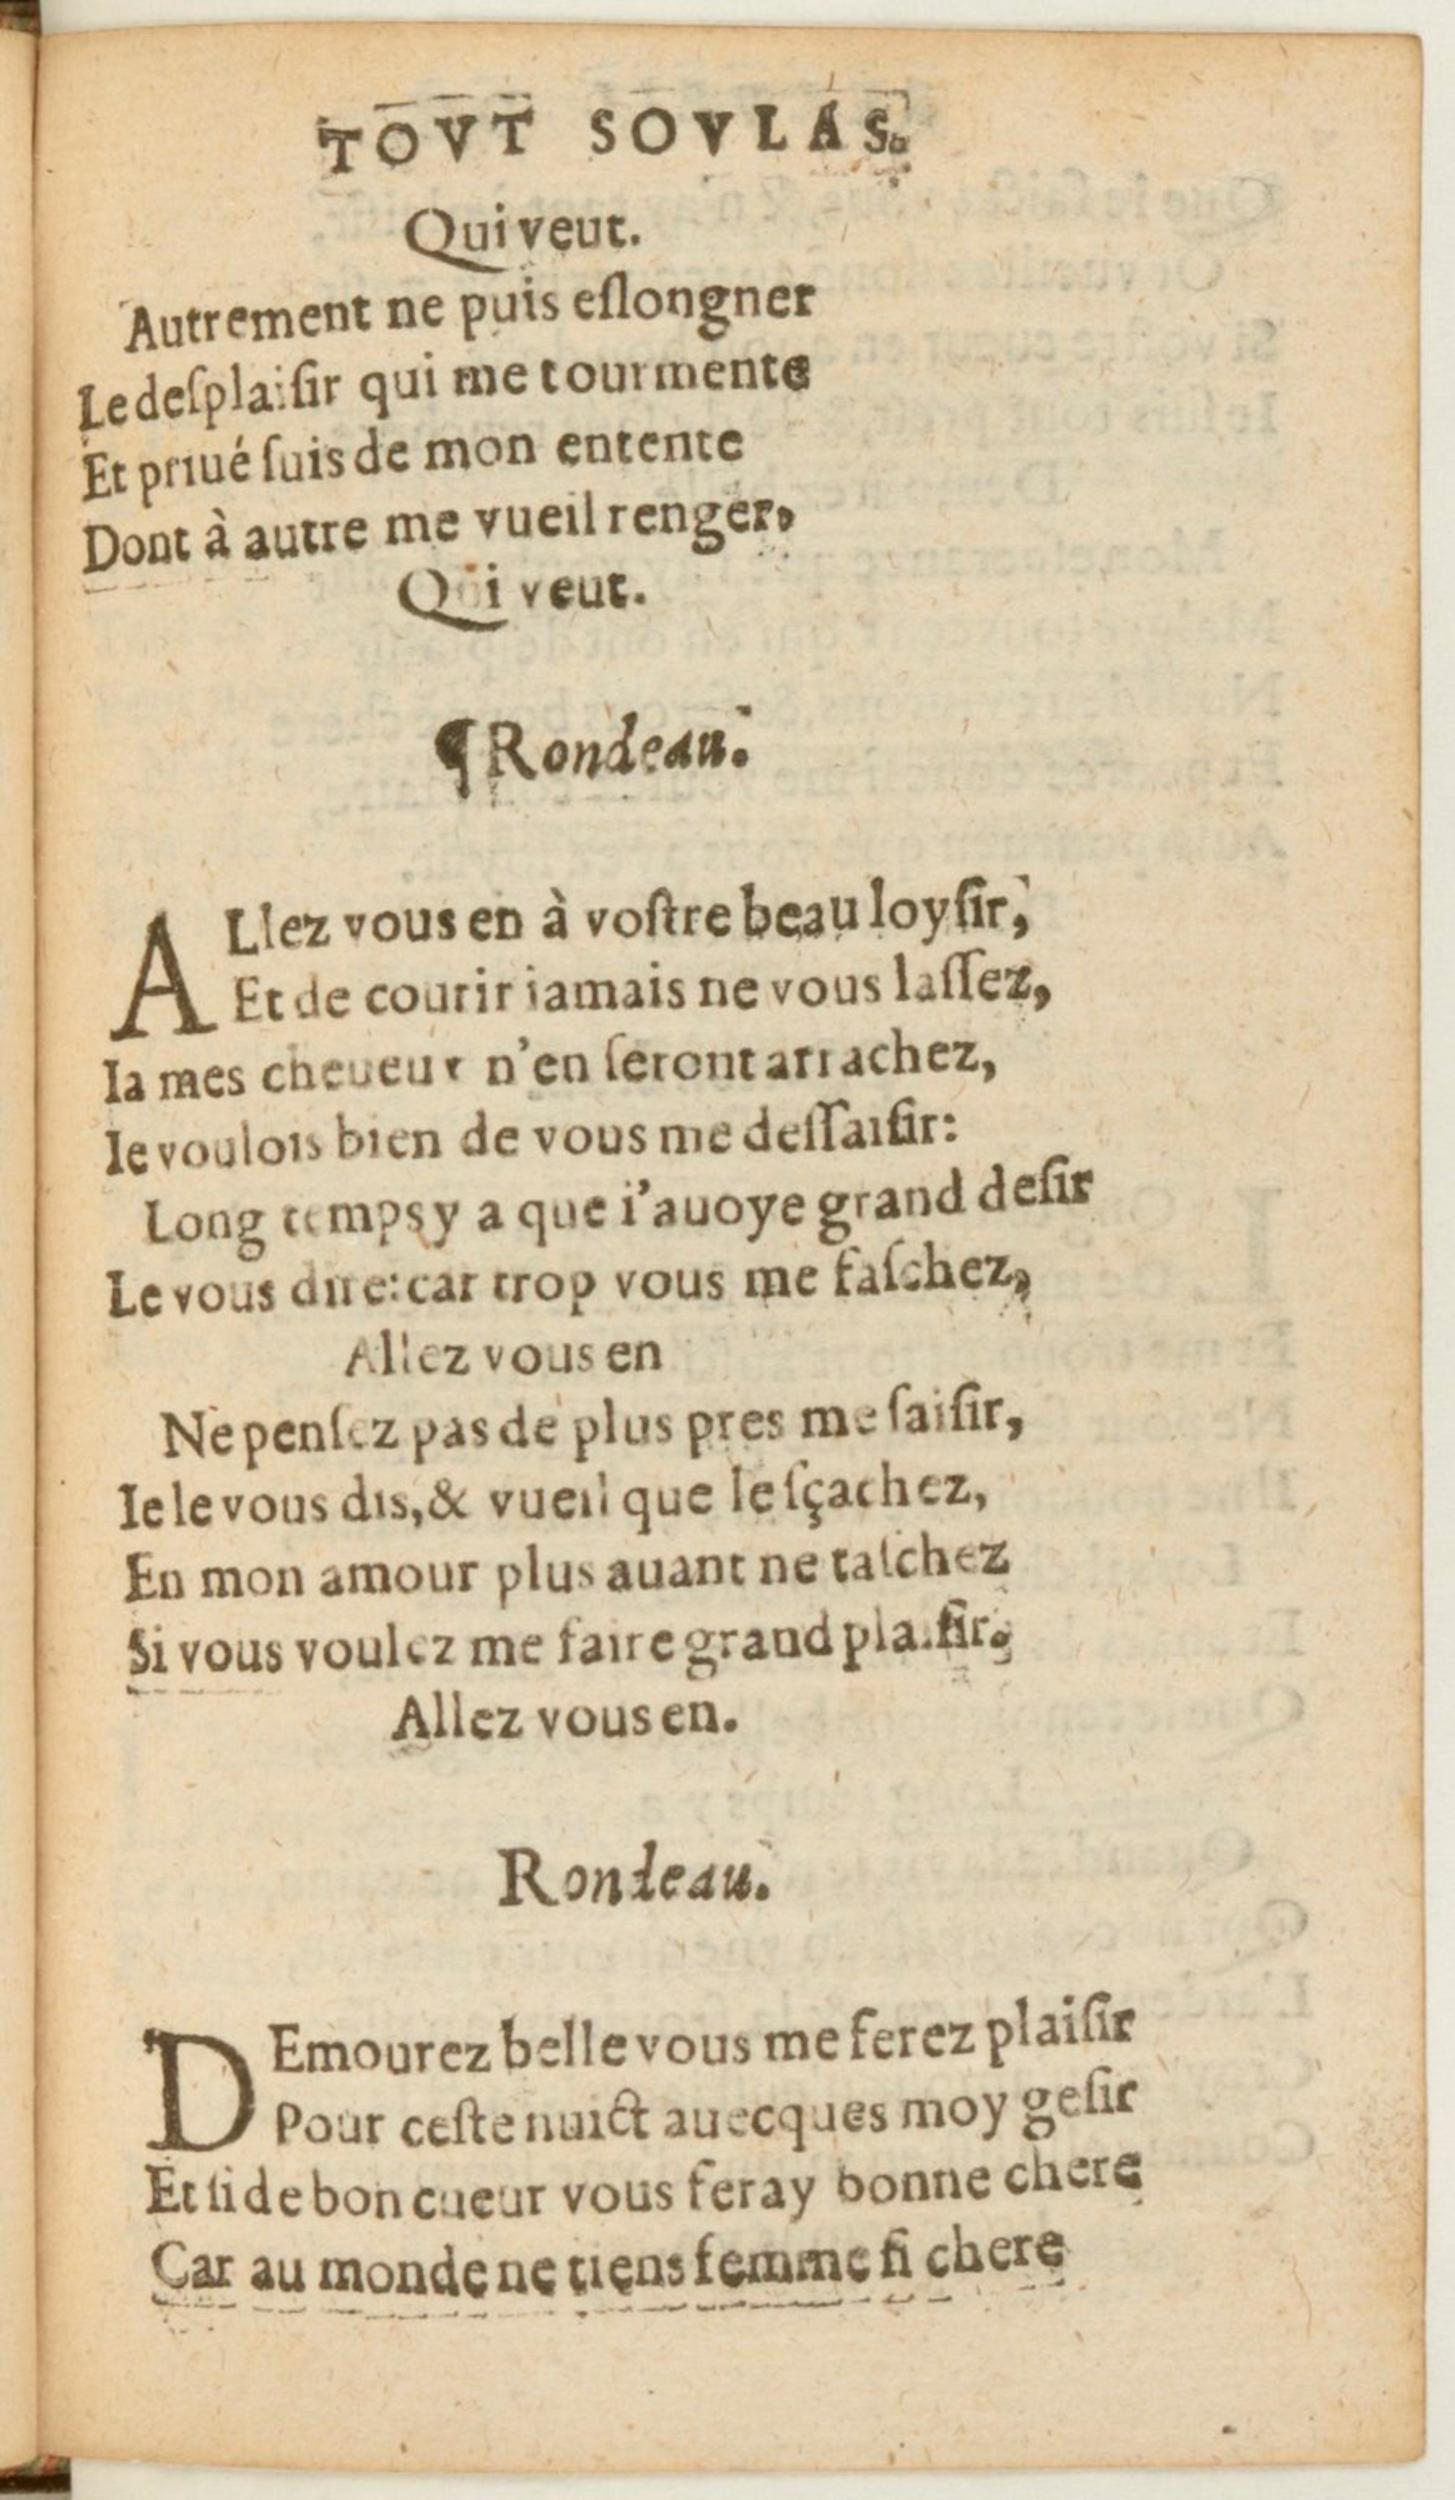 TOVT SOVLAS.
Qui veut.
Autrement ne puis eſlongner
Le deſplaiſir qui me tourmente
Et priué ſuis de mon entente
Dont à autre me vueil renger,
Qui veut.
¶ Rondeau.
ALlez vous en à voſtre beau loyſir,
Et de courir iamais ne vous laſſez,
Ia mes cheueux n'en ſeront arrachez,
Ie voulois bien de vous me deſſaiſir:
Long temps y a que i'auoye grand deſir
Le vous dire: car trop vous me faſchez,
Allez vous en
Ne penſez pas de plus pres me ſaiſir,
Ie le vous dis, & vueil que le ſçachez,
En mon amour plus auant ne taſchez
Si vous voulez me faire grand plaiſir.
Allez vous en.
Rondeau.
DEmourez belle vous me ferez plaiſir
Pour ceſte nuict auecques moy geſir
Et ſi de bon cueur vous feray bonne chere
Car au monde ne tiens femme ſi chere